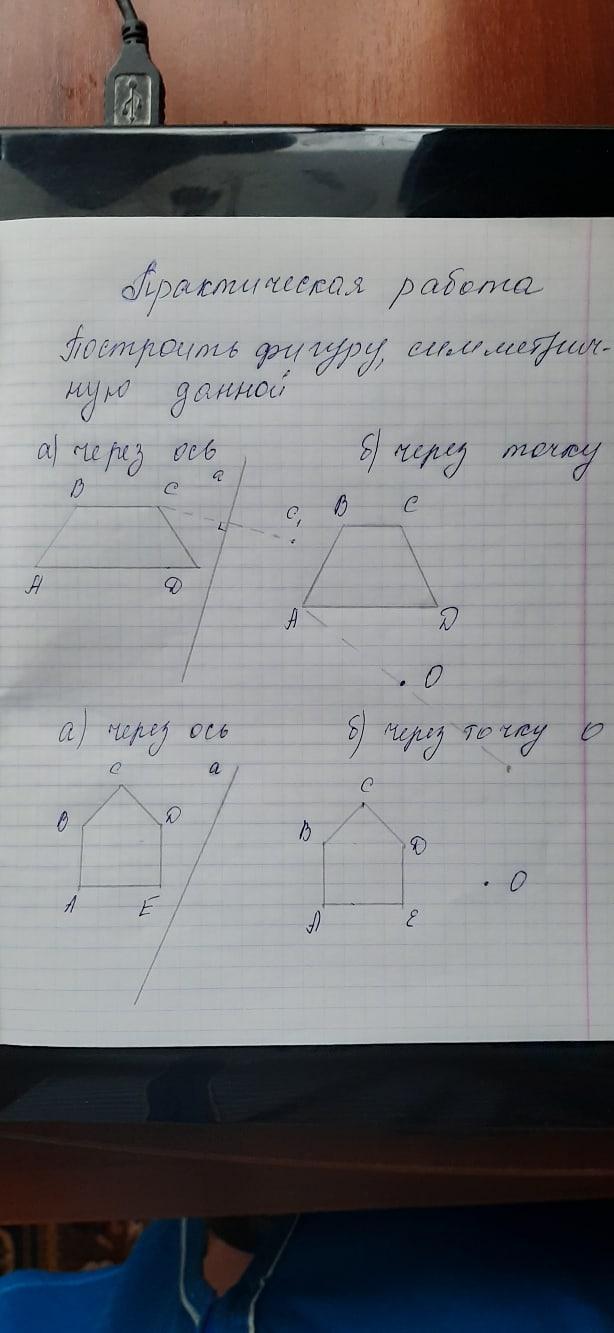 Практическая работа
Построить фигуру, симметрич-
ную данной
а) через ось
б) через точку
a
B C
A D
C₁
B C
A D
O
а) через ось
б) через точку O
a
C
B D
A E
C
B D
A E
O